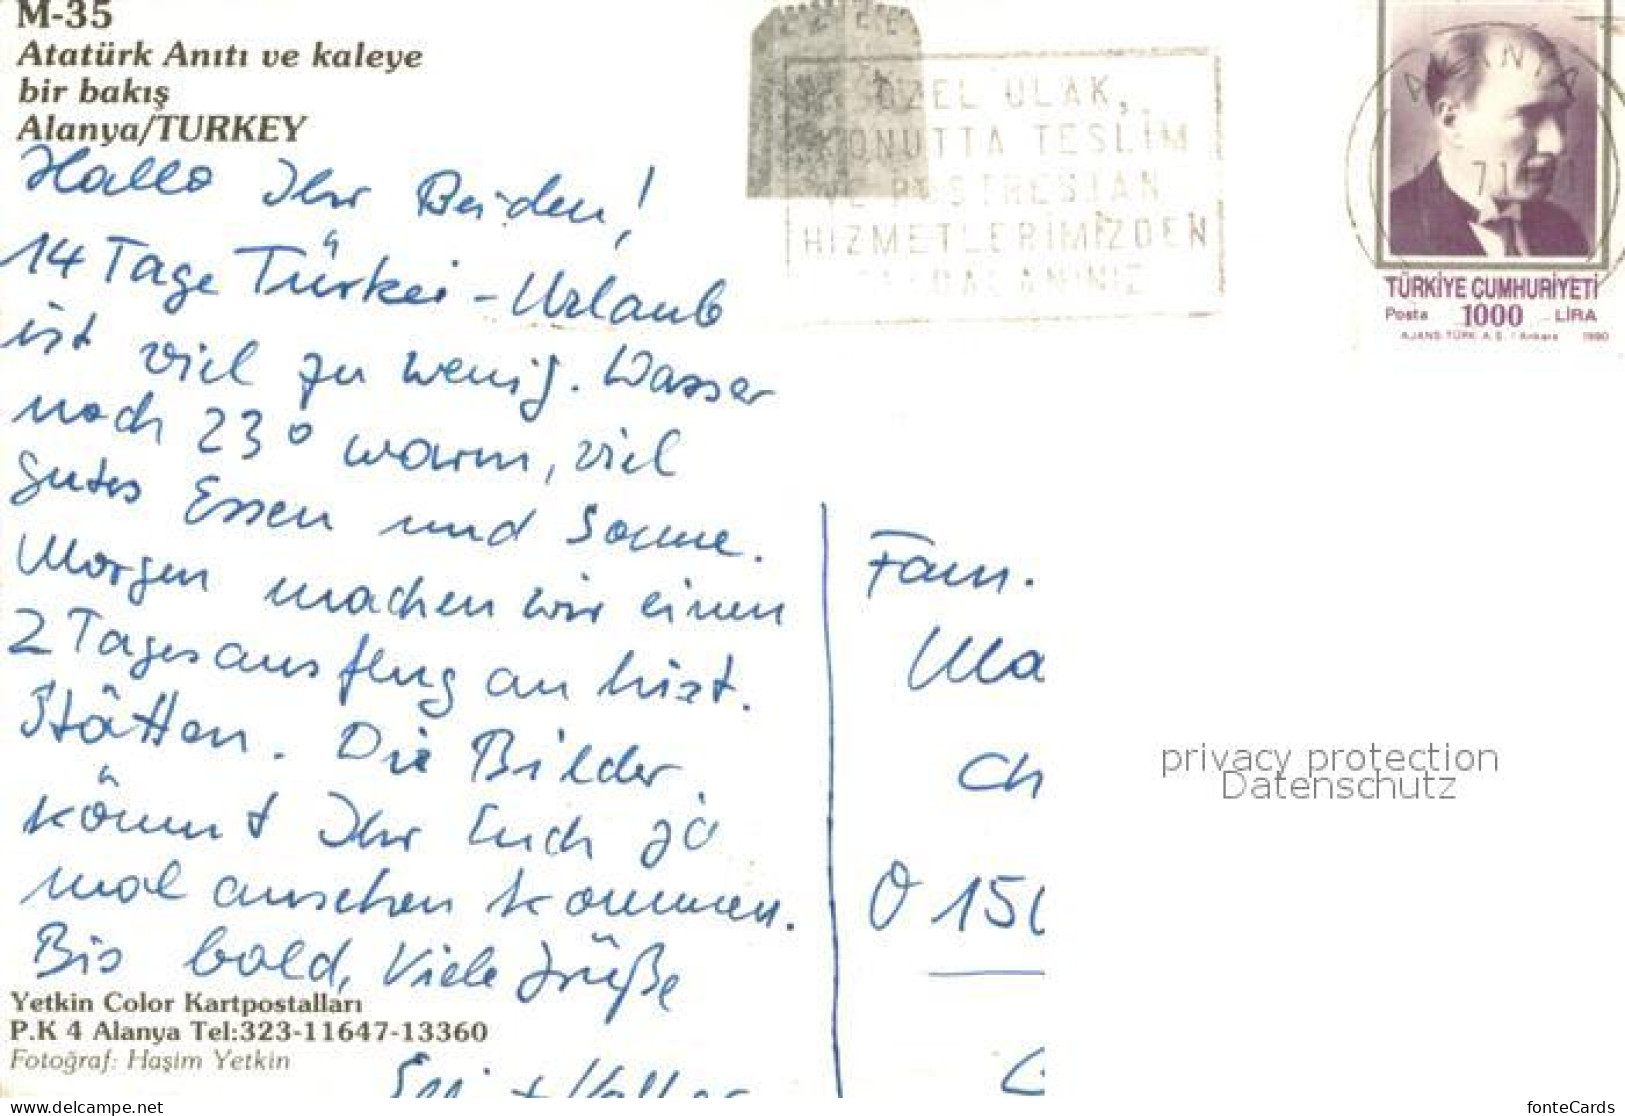 M-35
Atatürk Anıtı ve kaleye
bir bakış
Alanya/TURKEY
Hallo Ihr Beiden!
14 Tage Türkei-Urlaub
ist viel zu wenig. Wasser
noch 23° warm, viel
gutes Essen und Sonne.
Morgen machen wir einen
2 Tagesausflug an hist.
Stätten. Die Bilder
könnt Ihr Euch ja
mal ansehen kommen.
Bis bald, Viele Grüße
Yetkin Color Kartpostalları
P.K 4 Alanya Tel:323-11647-13360
Fotoğraf: Haşim Yetkin
ÖZEL ULAK,
KONUTTA TESLİM
VE POSTRESTAN
HİZMETLERİMİZDEN
ALANYA
TÜRKİYE CUMHURİYETİ
Posta 1000 LİRA
AJANS-TÜRK A.Ş. / Ankara 1990
Fam.
Ma
Ch
O 150
privacy protection
Datenschutz
www.delcampe.net
fonteCards